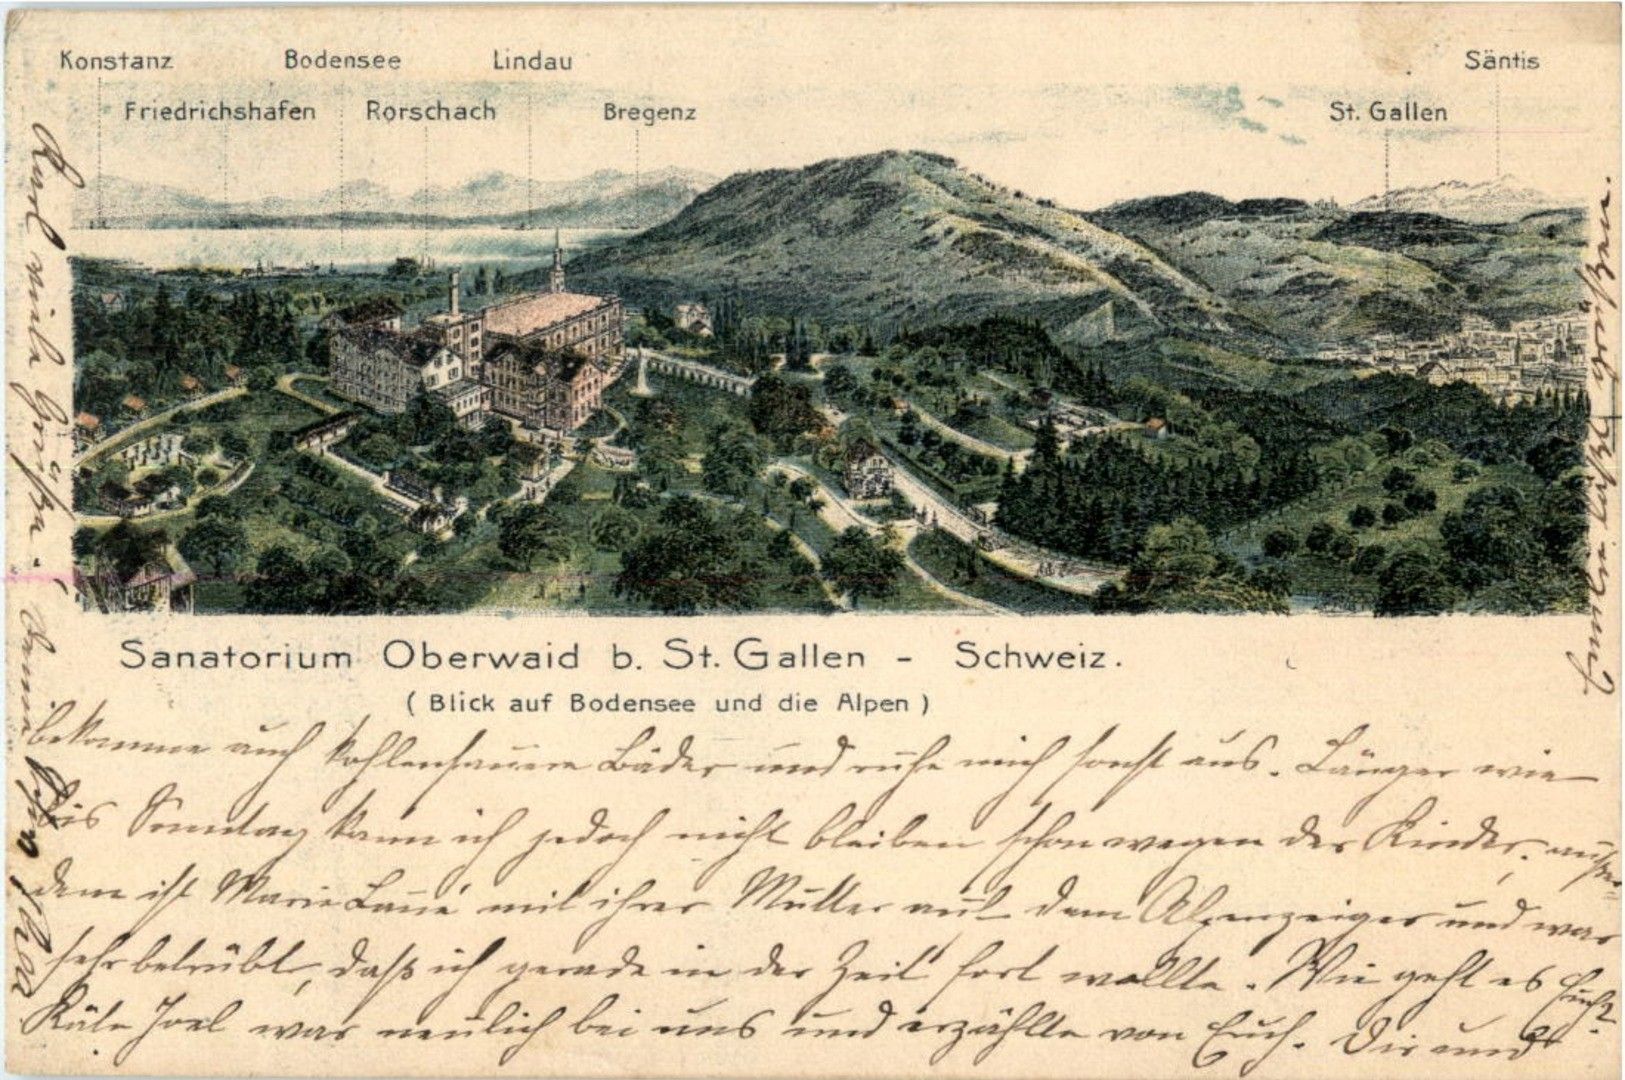 Konstanz Bodensee Lindau Säntis
Friedrichshafen Rorschach Bregenz St. Gallen
Sanatorium Oberwaid b. St. Gallen - Schweiz.
( Blick auf Bodensee und die Alpen )
bekomme auch kohlensauere Bäder und ruhe mich sonst aus. Länger wie
bis Sonntag kann ich jedoch nicht bleiben schon wegen der Kinder, außer-
dem ist Marie mit ihrer Mutter auf dem Alpenzeiger und war
sehr betrübt, daß ich gerade in der Zeit fort wollte. Wie geht es Euch?
Käte Joel war neulich bei uns und erzählte von Euch. Dir und
Kurl viele Grüße.